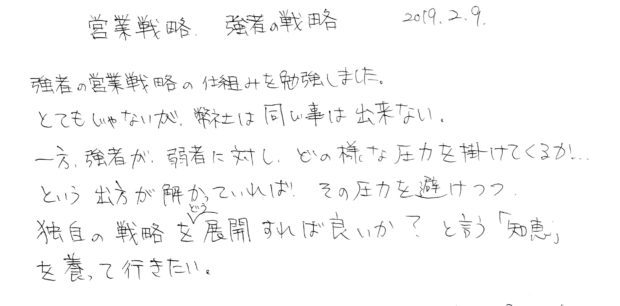 営業戦略、強者の戦略 2019.2.9.
強者の営業戦略の仕組みを勉強しました。
とてもじゃないが、弊社は同じ事は出来ない。
一方、強者が、弱者に対し、どの様な圧力を掛けてくるか…
という出方が解かっていれば、その圧力を避けつつ、
独自の戦略をどう展開すれば良いか？と言う「知恵」
を養って行きたい。